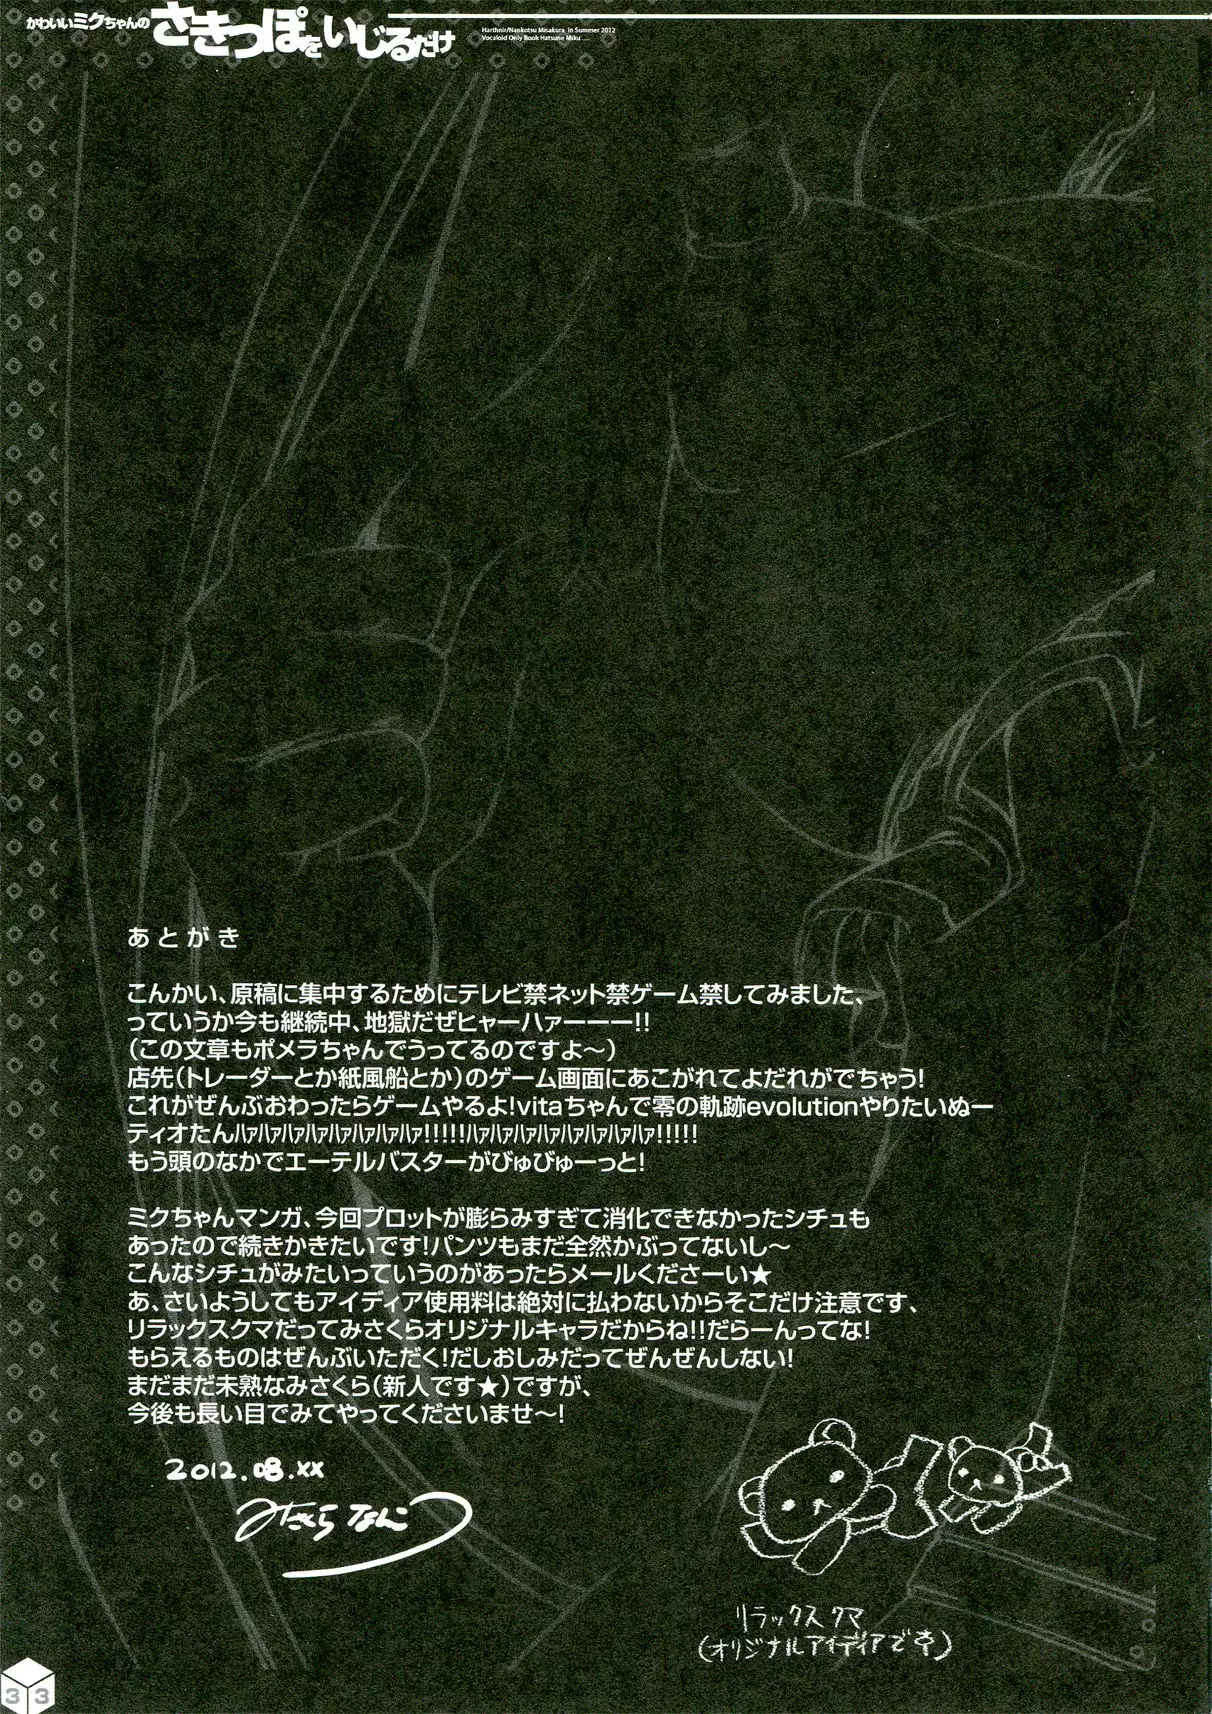 かわいいミクちゃんの さきっぽをいじるだけ
Harthnir/Nankotsu Misakura in Summer 2012
Vocaloid Only Book Hatsune Miku ......
あとがき
こんかい、原稿に集中するためにテレビ禁ネット禁ゲーム禁してみました、
っていうか今も継続中、地獄だぜヒャーハァーーー!!
（この文章もポメラちゃんでうってるのですよ〜）
店先（トレーダーとか紙風船とか）のゲーム画面にあこがれてよだれがでちゃう!
これがぜんぶおわったらゲームやるよ!vitaちゃんで零の軌跡evolutionやりたいぬー
ティオたんﾊｧﾊｧﾊｧﾊｧﾊｧﾊｧﾊｧﾊｧ!!!!!ﾊｧﾊｧﾊｧﾊｧﾊｧﾊｧﾊｧﾊｧ!!!!!
もう頭のなかでエーテルバスターがびゅびゅーっと!
ミクちゃんマンガ、今回プロットが膨らみすぎて消化できなかったシチュも
あったので続きかきたいです!パンツもまだ全然かぶってないし〜
こんなシチュがみたいっていうのがあったらメールくださーい★
あ、さいようしてもアイディア使用料は絶対に払わないからそこだけ注意です、
リラックスクマだってみさくらオリジナルキャラだからね!!だらーんってな!
もらえるものはぜんぶいただく!だしおしみだってぜんぜんしない!
まだまだ未熟なみさくら（新人です★）ですが、
今後も長い目でみてやってくださいませ〜!
2012.08.xx
みさくらなんこつ
リラックスクマ
（オリジナルアイディアです）
33